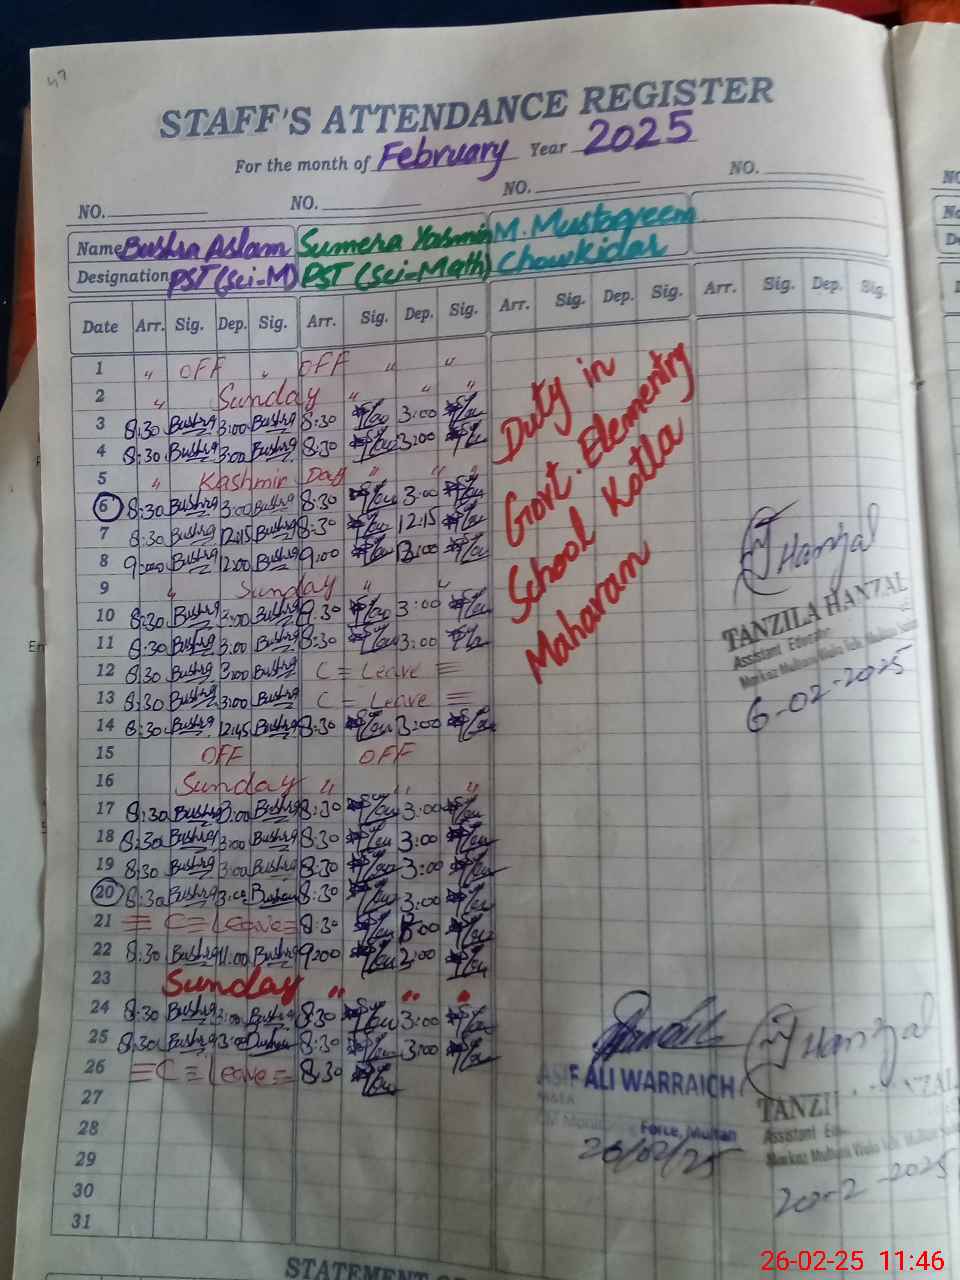 47
STAFF'S ATTENDANCE REGISTER
For the month of February Year 2025
NO. NO. NO. NO.
Name Bushra Aslam Sumera Yasmin M. Mustaqreem
Designation PST (Sci-M) PST (Sci-Math) Chowkidar
Date Arr. Sig. Dep. Sig. Arr. Sig. Dep. Sig. Arr. Sig. Dep. Sig. Arr. Sig. Dep. Sig.
1 " OFF " OFF " "
2 " Sunday " " "
3 8:30 Bushra 3:00 Bushra 8:30 3:00
4 8:30 Bushra 3:00 Bushra 8:30 3:00
5 " Kashmir Day " " "
6 8:30 Bushra 3:00 Bushra 8:30 3:00
7 8:30 Bushra 12:15 Bushra 8:30 12:15
8 9:00 Bushra 12:00 Bushra 9:00
9 " Sunday " "
10 8:30 Bushra 3:00 Bushra 3:00
11 8:30 Bushra 3:00 Bushra 8:30 3:00
12 8:30 Bushra 3:00 Bushra C = Leave
13 8:30 Bushra 3:00 Bushra C = Leave
14 8:30 Bushra 12:45 Bushra 8:30 3:00
15 OFF OFF
16 Sunday " " "
17 8:30 Bushra 3:00 Bushra 8:30 3:00
18 8:30 Bushra 3:00 Bushra 8:30 3:00
19 8:30 Bushra 3:00 Bushra 8:30 3:00
20 8:30 Bushra 3:00 Bushra 8:30 3:00
21 C = Leave = 8:30
22 8:30 Bushra 11:00 Bushra 9:00 2:00
23 Sunday " " "
24 8:30 Bushra 3:00 Bushra 8:30 3:00
25 8:30 Bushra 3:00 Bushra 8:30 3:00
26 = C = Leave = 8:30
27
28
29
30
31
Duty in
Govt. Elementry
School Kotla
Maharam
Hanzal
TANZILA HANZAL
Assistant Educator
6-02-2025
ASIF ALI WARRAICH
Force, Multan
26/02/25
Hanzal
TANZI
Assistant
20-2-2025
STATEMENT
26-02-25 11:46